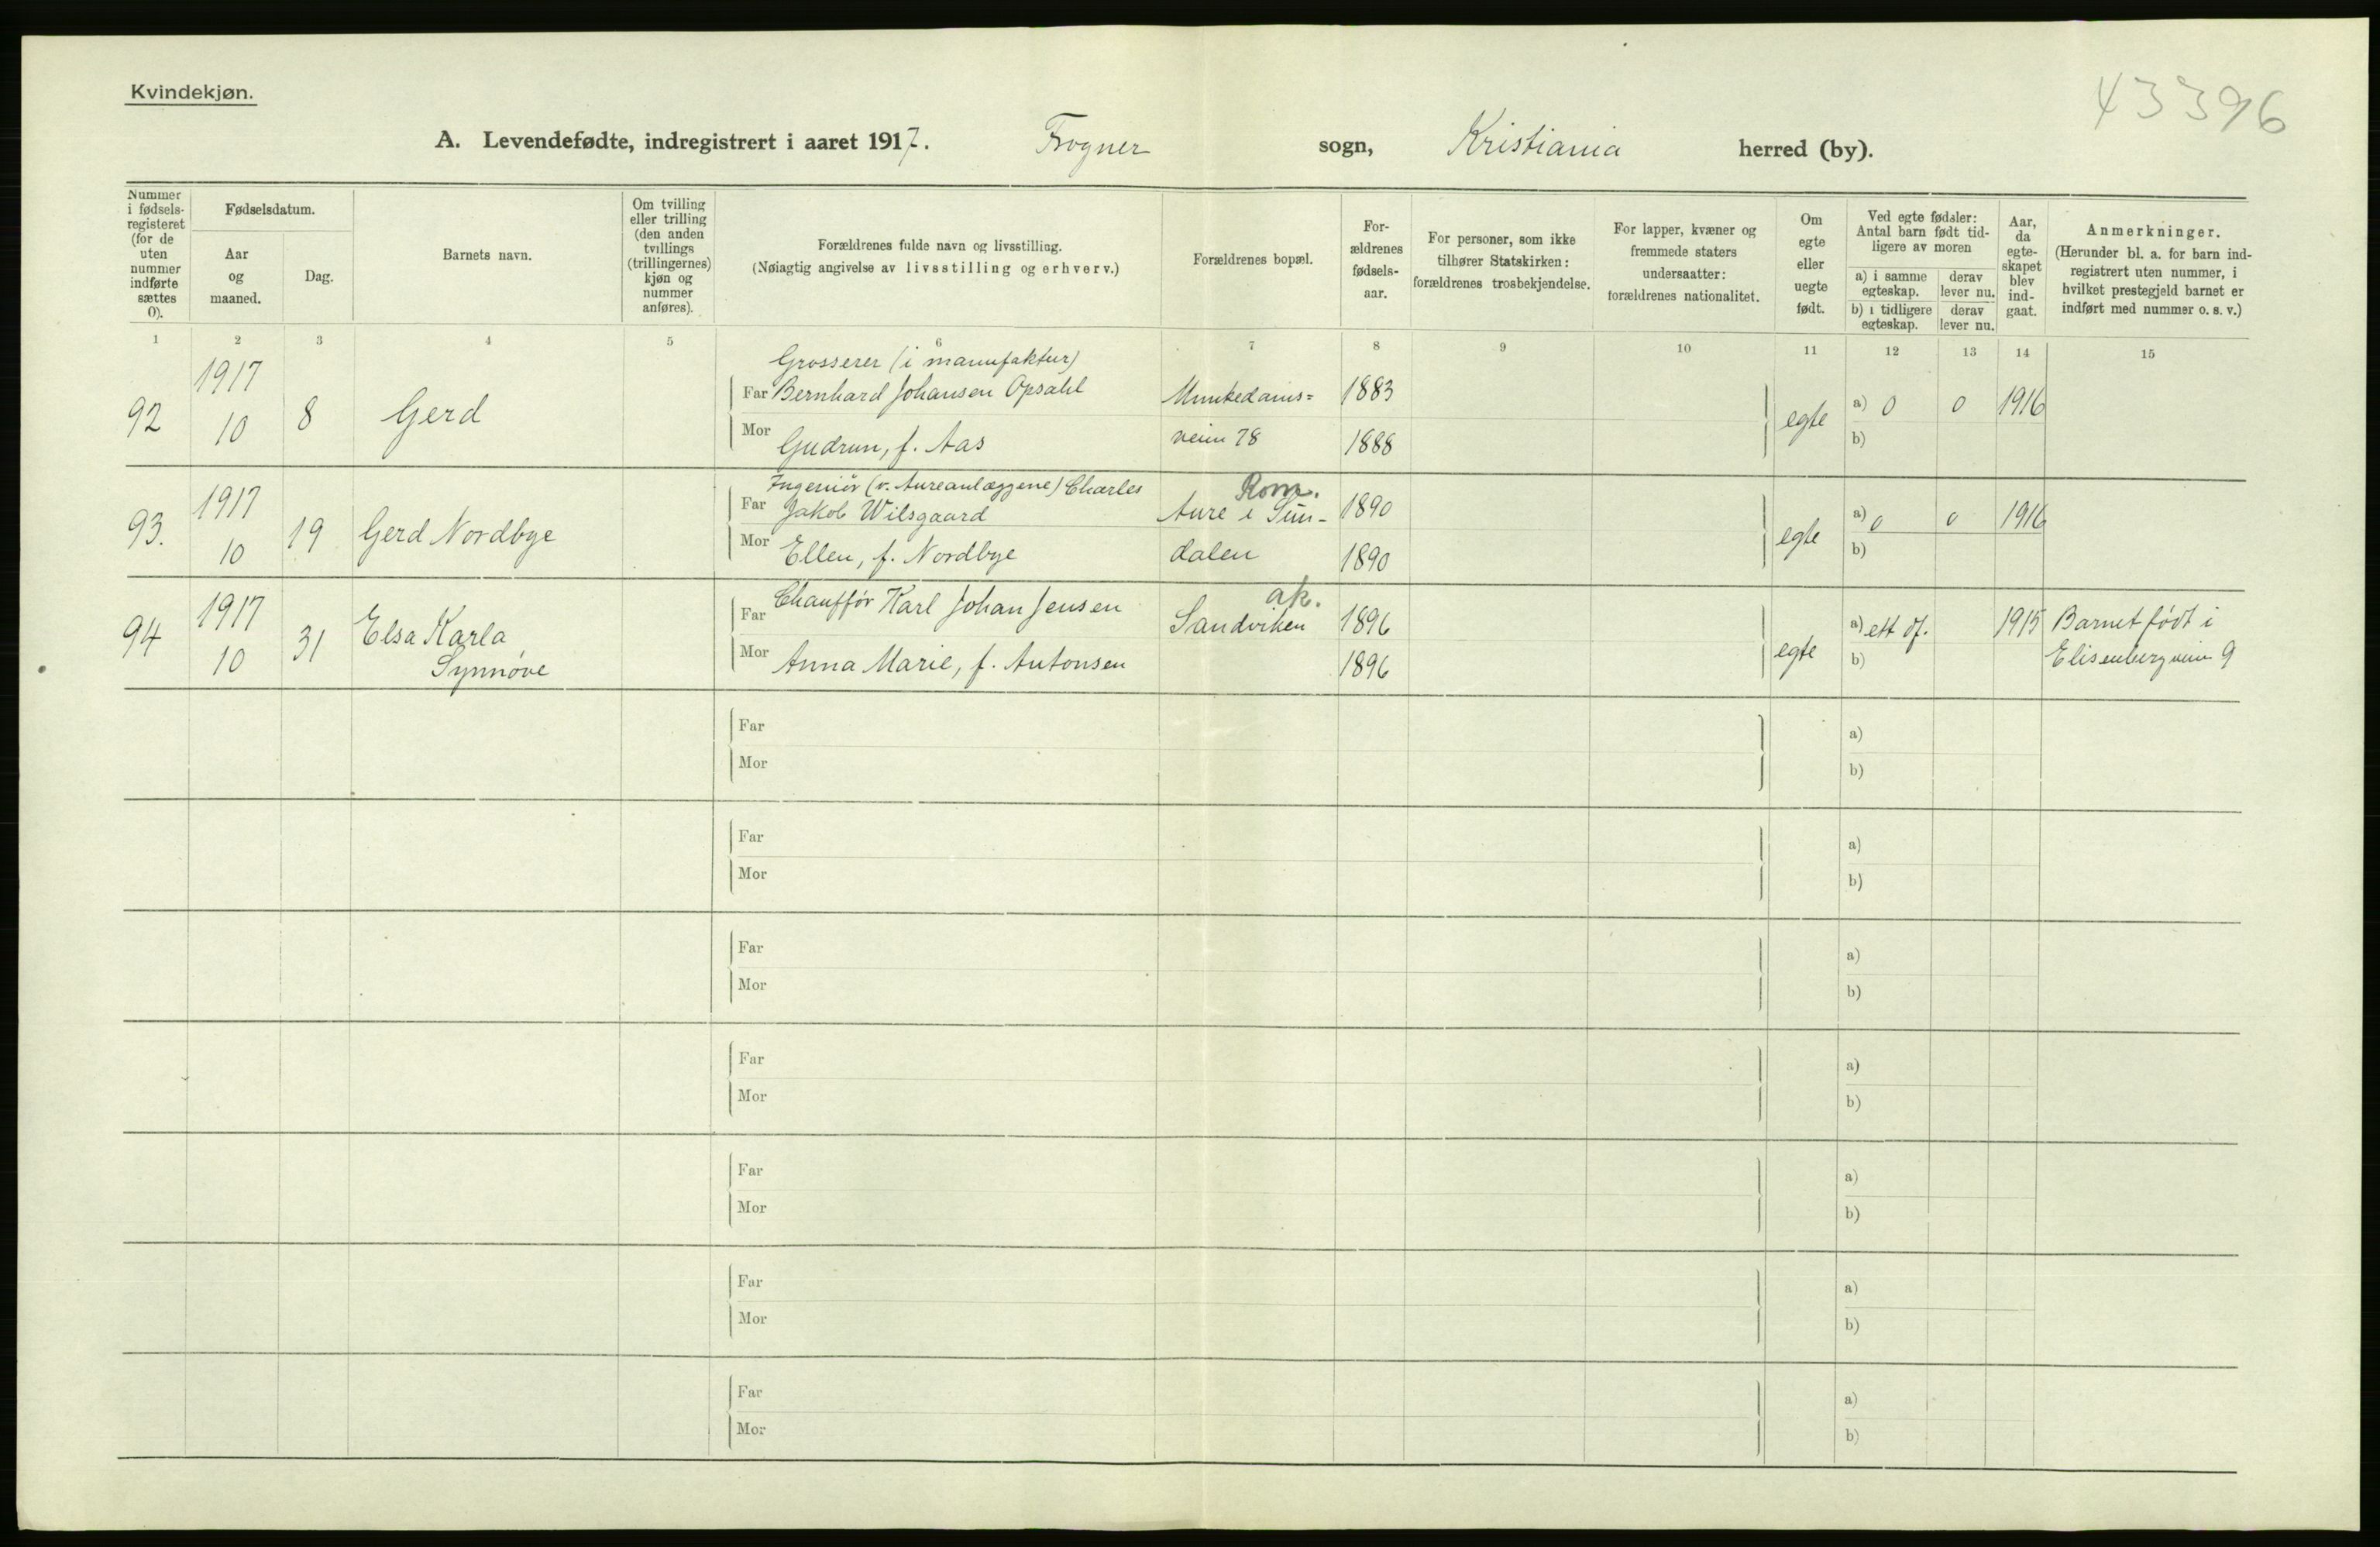 Kvindekjøn.
43396
A. Levendefødte, indregistrert i aaret 1917. Frogner sogn, Kristiania herred (by).
Nummer i fødsels-registeret (for de uten nummer indførte sættes 0).
Fødselsdatum.
Aar og maaned.
Dag.
Barnets navn.
Om tvilling eller trilling (den anden tvillings (trillingernes) kjøn og nummer anføres).
Forældrenes fulde navn og livsstilling.
(Nøiagtig angivelse av livsstilling og erhverv.)
Forældrenes bopæl.
For-ældrenes fødsels-aar.
For personer, som ikke tilhører Statskirken: forældrenes trosbekjendelse.
For lapper, kvæner og fremmede staters undersaatter: forældrenes nationalitet.
Om egte eller uegte født.
Ved egte fødsler: Antal barn født tid-ligere av moren
a) i samme egteskap.
derav lever nu.
b) i tidligere egteskap.
derav lever nu.
Aar, da egte-skapet blev ind-gaat.
Anmerkninger.
(Herunder bl. a. for barn ind-registrert uten nummer, i hvilket prestegjeld barnet er indført med nummer o. s. v.)
1 2 3 4 5 6 7 8 9 10 11 12 13 14 15
Grosserer (i manufaktur)
92 1917 10 8 Gerd Far Bernhard Johansen Opsahl Munkedams= 1883 egte a) 0 0 1916
Mor Gudrun, f. Aas veien 78 1888 b)
Ingeniör (v. Aureanlæggene) Charles Rom.
93. 1917 10 19 Gerd Nordbye Far Jakob Wilsgaard Aure i Sun- 1890 egte a) 0 0 1916
Mor Ellen, f. Nordbye dalen 1890 b)
ak.
94 1917 10 31 Elsa Karla Far Chauffør Karl Johan Jensen Sandviken 1896 egte a) ett df. 1915 Barnet født i
Synnøve Mor Anna Marie, f. Antonsen 1896 b) Elisenbergveien 9
Far a)
Mor b)
Far a)
Mor b)
Far a)
Mor b)
Far a)
Mor b)
Far a)
Mor b)
Far a)
Mor b)
Far a)
Mor b)